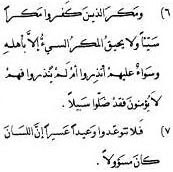 ٦) ومكر الذين كفروا مكراً
سيّئاً ولا يحيق المكر السيئ إلاّ بأهله
وسواءٌ عليهم أنذروا أم لم يُنذروا فهم
لا يؤمنون فقد ضلّوا سبيلاً.
٧) فلا تتوعّدوا وعيداً عسيراً إنّ اللسان
كان مسؤولاً.